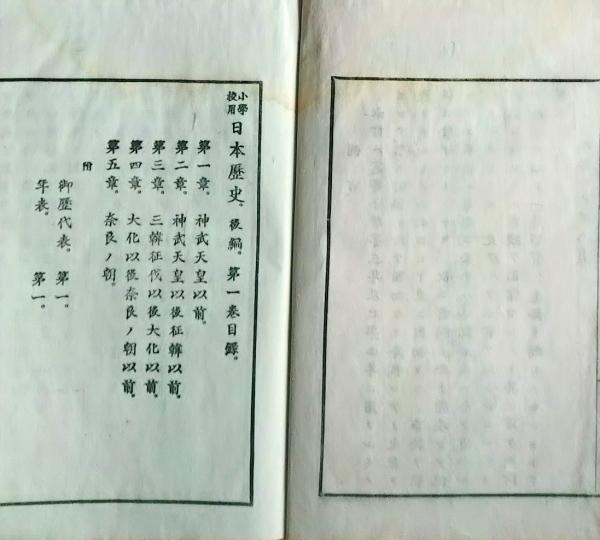 小學校用 日本歷史。後編。第一卷目錄。
第一章。神武天皇以前。
第二章。神武天皇以後征韓以前。
第三章。三韓征伐以後大化以前。
第四章。大化以後奈良ノ朝以前。
第五章。奈良ノ朝。
附
御歷代表。第一。
年表。第一。